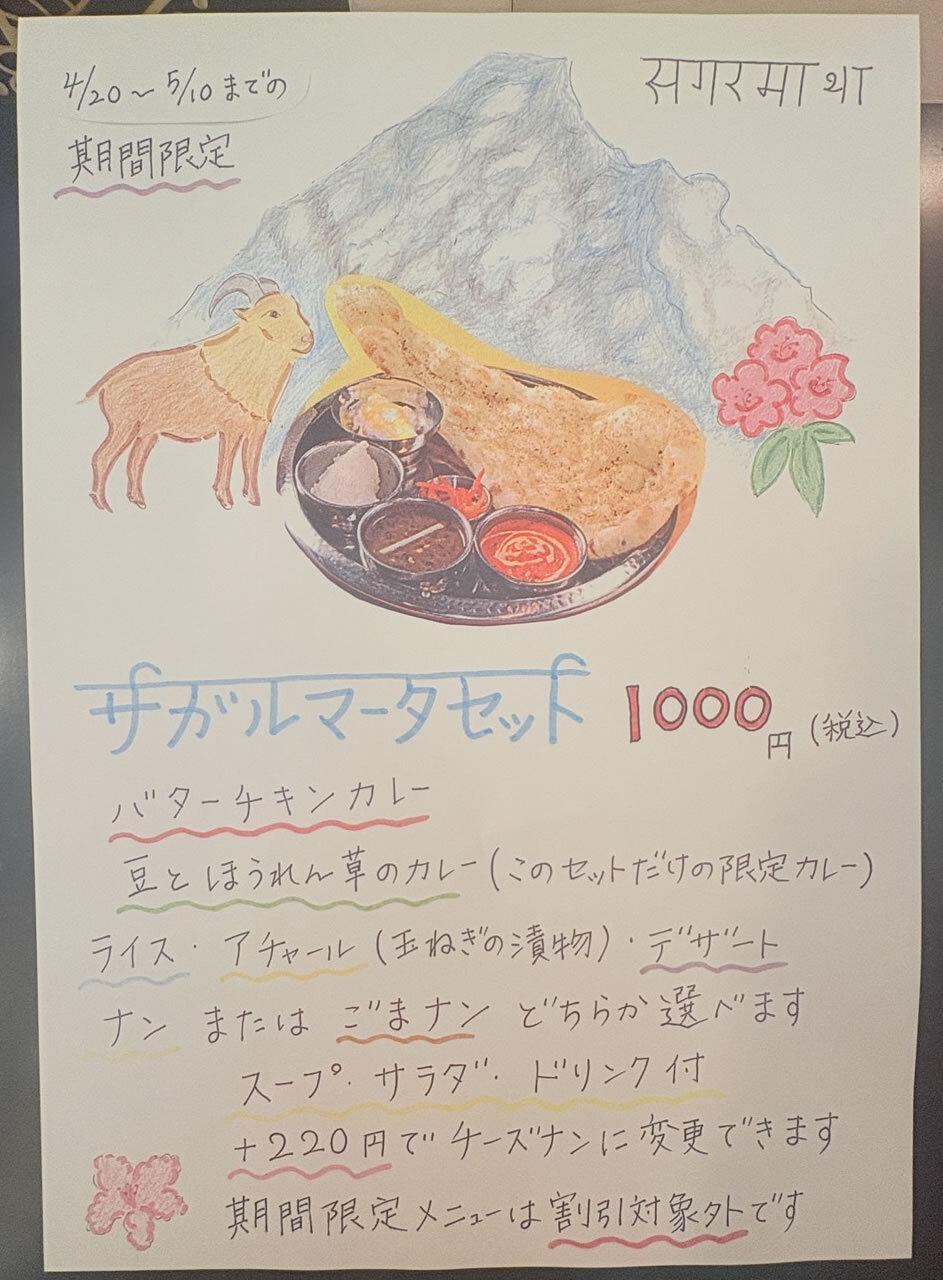 4/20～5/10までの
期間限定
सगरमाथा
サガルマータセット 1000円(税込)
バターチキンカレー
豆とほうれん草のカレー(このセットだけの限定カレー)
ライス・アチャール(玉ねぎの漬物)・デザート
ナン または ごまナン どちらか選べます
スープ・サラダ・ドリンク付
+220円でチーズナンに変更できます
期間限定メニューは割引対象外です